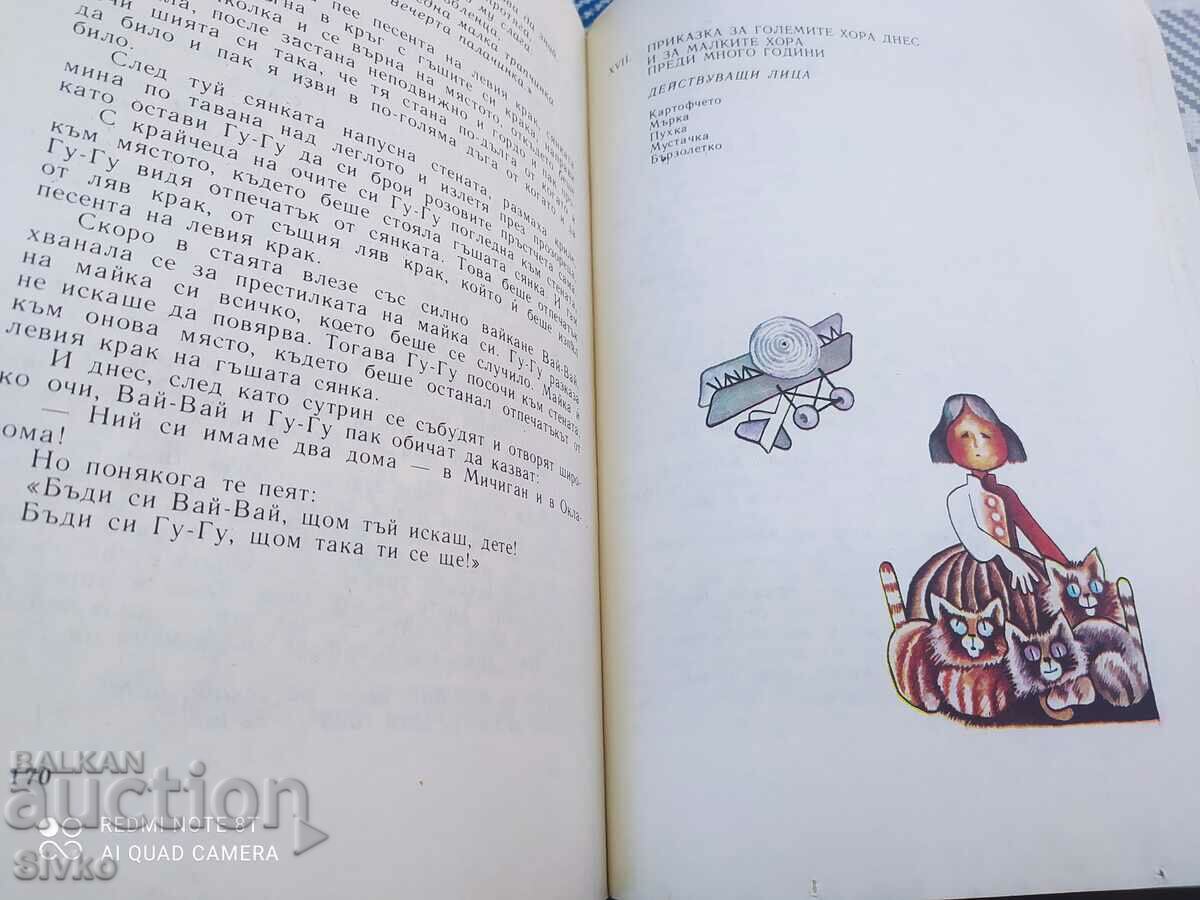 да било и пак я изви в по-голяма дъга от когато и да
било.
След туй сянката напусна стената, размаха криле,
мина по тавана над леглото и излетя през прозореца,
като остави Гу-Гу да си брои розовите пръстчета само.
С крайчеца на очите си Гу-Гу погледна към стената,
към мястото, където беше стояла гъшата сянка. И там
Гу-Гу видя отпечатък от сянката. Това беше отпечатък
от ляв крак, от същия ляв крак, който ѝ беше
песента на левия крак.
Скоро в стаята влезе със силно вайкане Вай-Вай,
хванала се за престилката на майка си. Гу-Гу разказа
на майка си всичко, което беше се случило. Майка ѝ
не искаше да повярва. Тогава Гу-Гу посочи към стената,
към онова място, където беше останал отпечатъкът от
левия крак на гъшата сянка.
И днес, след като сутрин се събудят и отворят широ-
ко очи, Вай-Вай и Гу-Гу пак обичат да казват:
— Ний си имаме два дома — в Мичиган и в Окла-
ома!
Но понякога те пеят:
«Бъди си Вай-Вай, щом тъй искаш, дете!
Бъди си Гу-Гу, щом така ти се ще!»
170
XVII. ПРИКАЗКА ЗА ГОЛЕМИТЕ ХОРА ДНЕС
И ЗА МАЛКИТЕ ХОРА
ПРЕДИ МНОГО ГОДИНИ
ДЕЙСТВУВАЩИ ЛИЦА
Картофчето
Мърка
Пухка
Мустачка
Бързолетко
BALKAN
auction
REDMI NOTE 8T
AI QUAD CAMERA
Sivko